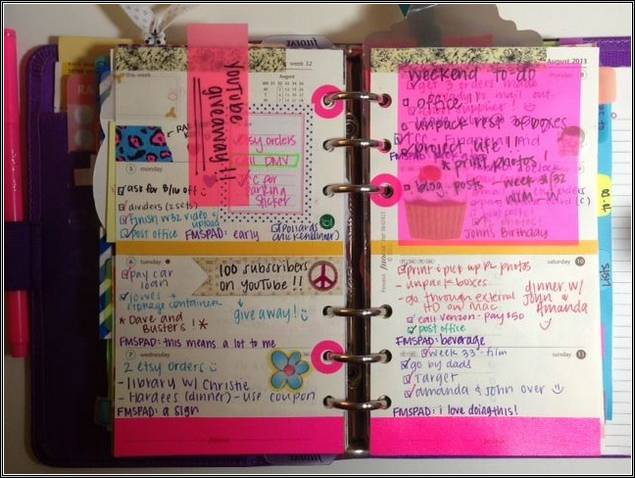 filofax
this week
week 32
August
YouTube
giveaway!!
etsy orders
call DMV
parking
sticker
5 monday
ask for 8/16 off
dividers (2 sets)
finish w32 video +
upload
post office
pollards
(chicken dinner)
FMSPAD: early
6 tuesday
pay car
loan
100 subscribers
on YouTube!!
lowes -
storage containers
give away!
* Dave and
Busters! *
FMSPAD: this means a lot to me
7 wednesday
2 etsy orders
- library w/ Christie
- Hardees (dinner) - use coupon
FMSPAD: a sign
August 2013
weekend to-do
office
unpack rest of boxes
project life
* print photos
blog posts - week 31/32
John's Birthday
saturday 10
print & pick up PL photos
- unpack boxes
- go through external
HD on Mac
dinner w/
John &
Amanda
call verizon - pay $50
post office
FMSPAD: beverage
sunday 11
week 33 - film
go by dads
Target
amanda & john over
FMSPAD: i love doing this!
LISTS